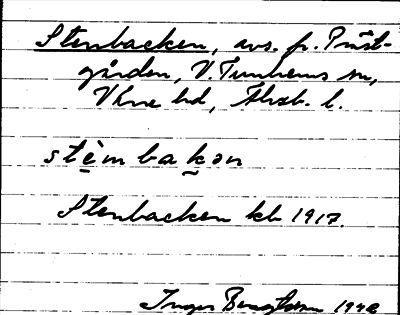 Stenbacken, avs. fr. Präst-
gården, V. Tunhems sn,
Väne hd, Älvsb. l.
stè̱mbak̬ən
Stenbacken kb 1917.
Inger Bengtsson 1942